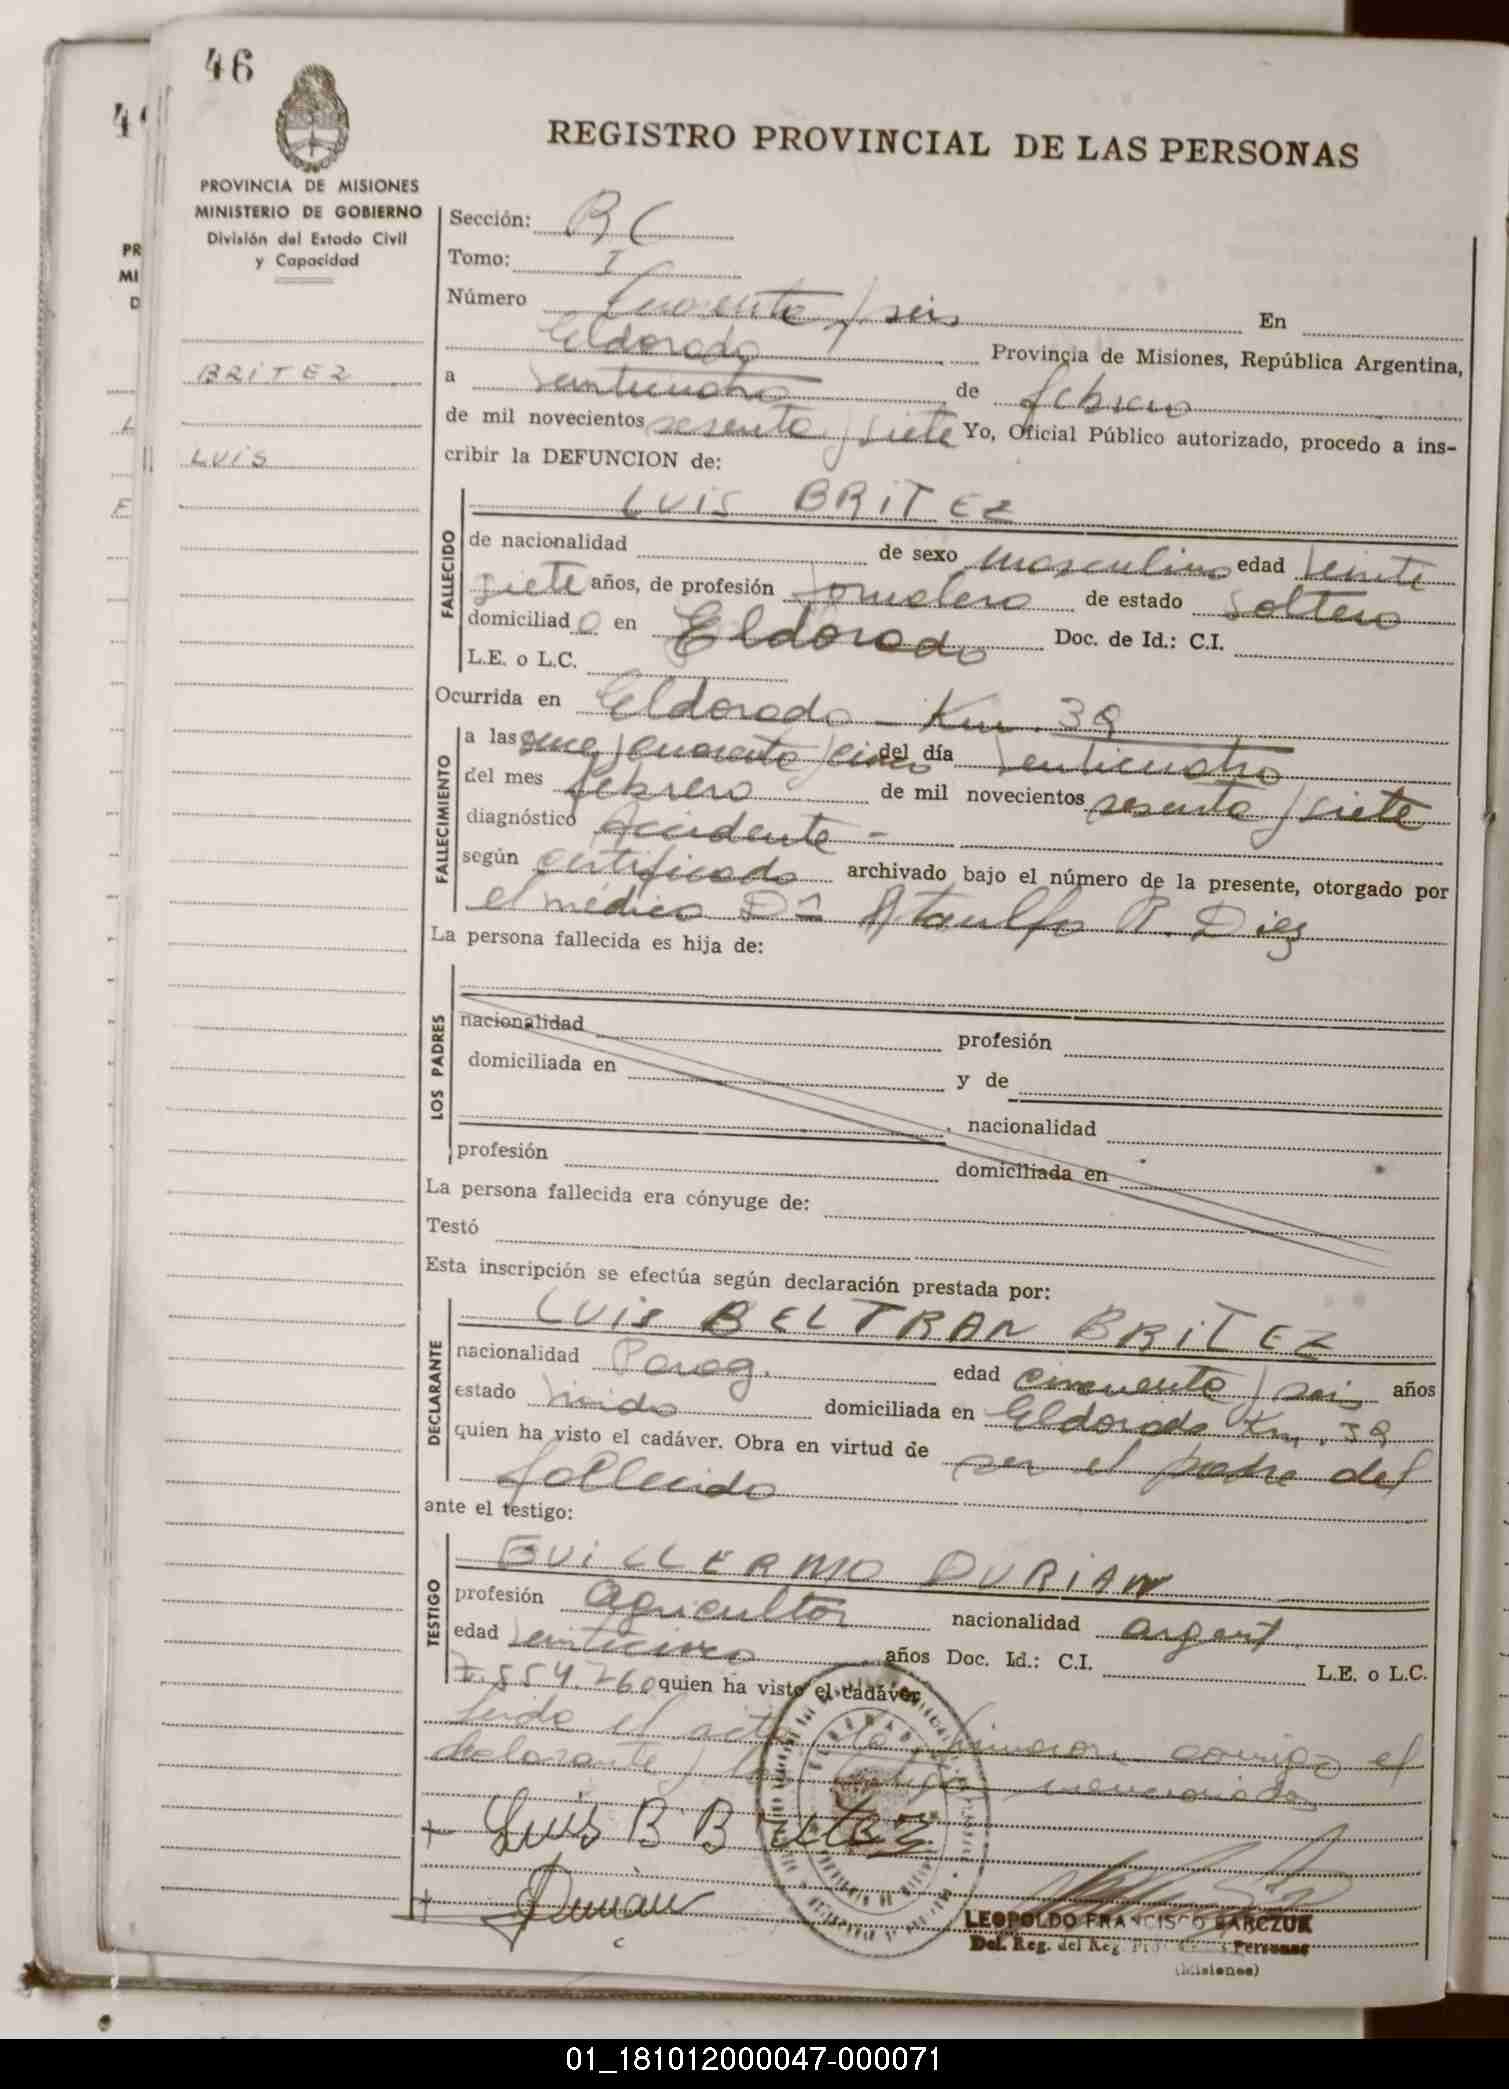 46
REGISTRO PROVINCIAL DE LAS PERSONAS
PROVINCIA DE MISIONES
MINISTERIO DE GOBIERNO
División del Estado Civil
y Capacidad
BRITEZ
LUIS
Sección: BC
Tomo: I
Número Cuarenta y seis En
Eldorado Provincia de Misiones, República Argentina,
a veinticuatro de febrero
de mil novecientos sesenta y siete Yo, Oficial Público autorizado, procedo a ins-
cribir la DEFUNCION de:
FALLECIDO
LUIS BRITEZ
de nacionalidad de sexo masculino edad veinte
siete años, de profesión Jornalero de estado soltero
domiciliado en Eldorado Doc. de Id.: C.I.
L.E. o L.C.
Ocurrida en Eldorado - Km.
FALLECIMIENTO
a las once y cuarenta y cinco del día veinticuatro
del mes febrero de mil novecientos sesenta y siete
diagnóstico Accidente -
según certificado archivado bajo el número de la presente, otorgado por
el médico Dr Ataulfo R. Diez
La persona fallecida es hija de:
LOS PADRES
nacionalidad profesión
domiciliada en y de
nacionalidad
profesión domiciliada en
La persona fallecida era cónyuge de:
Testó
Esta inscripción se efectúa según declaración prestada por:
DECLARANTE
LUIS BELTRAN BRITEZ
nacionalidad Parag. edad cincuenta y seis años
estado viudo domiciliada en Eldorado Km.
quien ha visto el cadáver. Obra en virtud de ser el padre del
fallecido
ante el testigo:
TESTIGO
GUILLERMO DURIAN
profesión agricultor nacionalidad argent.
edad veinticinco años Doc. Id.: C.I. L.E. o L.C.
7.554.260 quien ha visto el cadáver
Leido el acta la firmaron conmigo el
declarante y testigo mencionados
+ Luis B Britez
+ Durian
LEOPOLDO FRANCISCO BARCZUK
Del. Reg. del Reg. Personas
(Misiones)
01_181012000047-000071